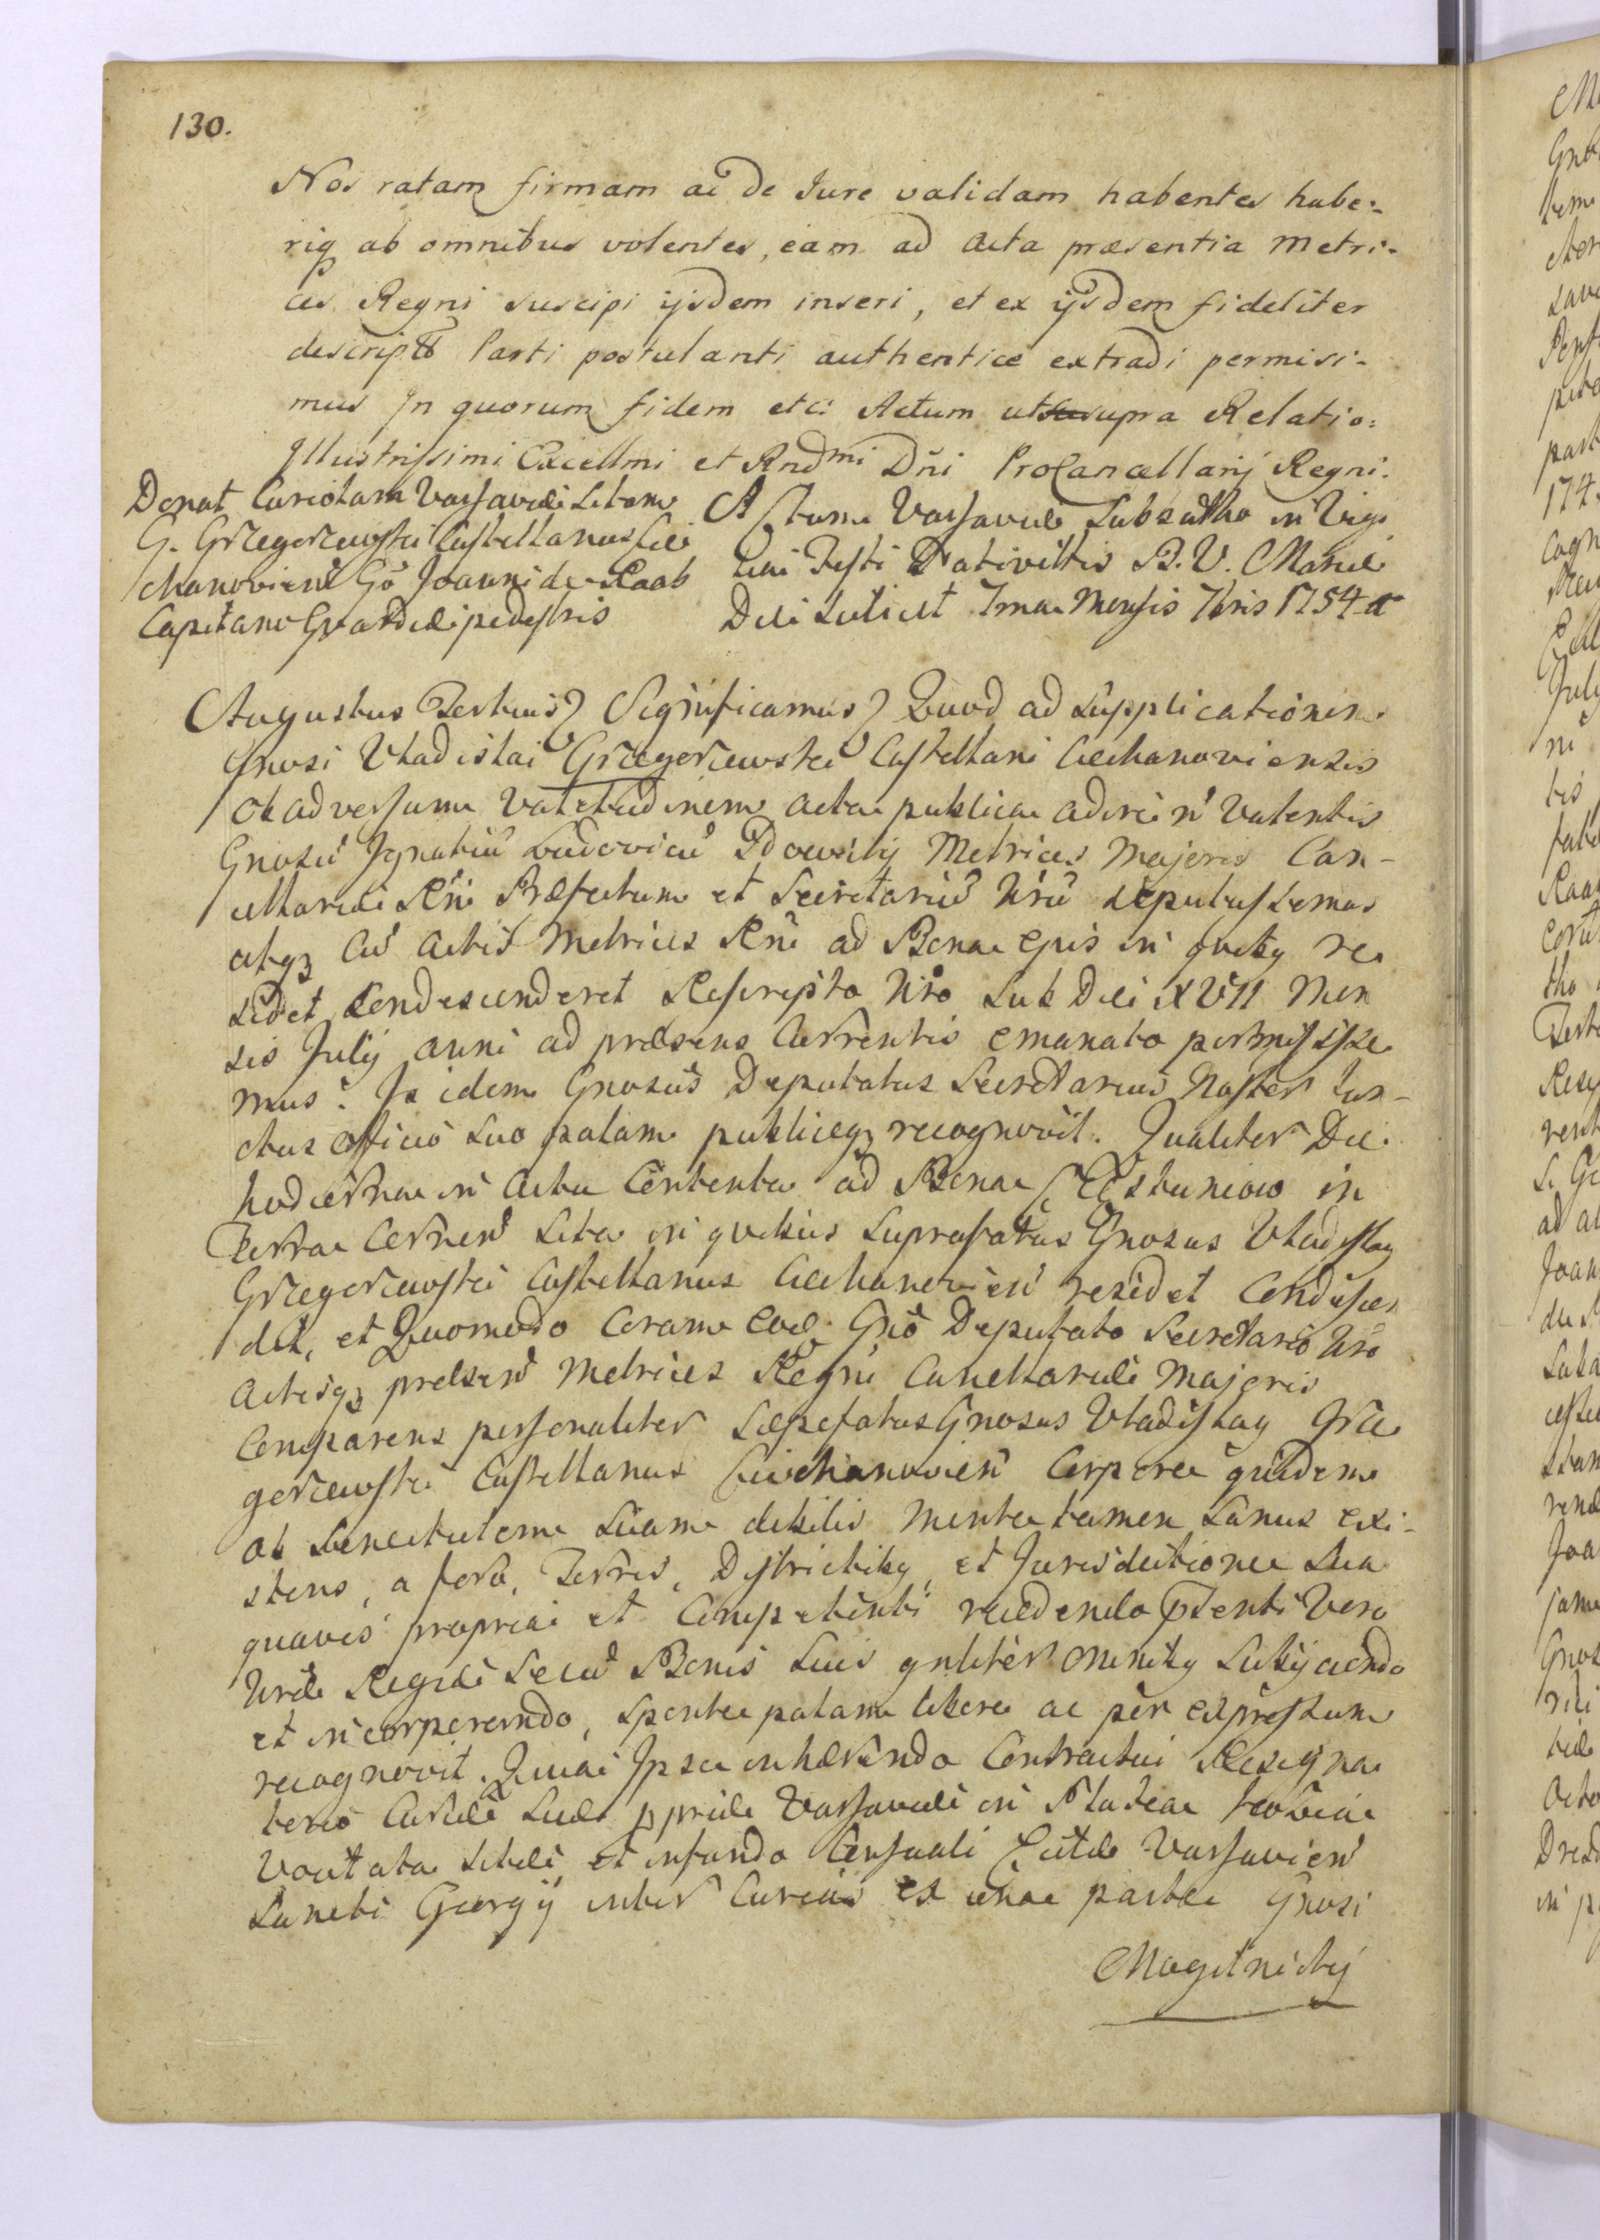 130.
Nos ratam firmam ac de Jure validam habentes habe:
riq ab omnibus volentes, eam ad Acta præsentia Metri-
ces Regni suscipi ijsdem inseri, et ex ijsdem fideliter
descript Parti postulanti authentice extradi permisi-
mus Jn quorum fidem etc: Actum ut supra Relatio:
Jllustrissimi Excellmi et Rndmi Dñi ProCancellarij Regni.
Donat Curiolam Varsaviæ Sitam
G. Grzegorzewski Castellanus Cie
chanovien Gō Joanni de Raab
Capitaneo Gvardiæ pedestris
Actum Varsaviæ Sabbatho in Vigi
lia Festi Nativittis B. V. Mariæ
Die scilicet 7ma Mensis 7bris 1754 a
Augustus Tertius Significamus Quod ad Supplicationem
Gnosi Vladislai Grzegorzewski Castellani Ciechanoviensis
ob adversam Valetudinem acta publica adire ñ Valentis
Gnosū Jgnatiū Ludovicū Metrices Majoris Can-
cellariæ Rñi Præfectum et Secretariū Nrū deputassemus
atq Cū Actis Metrices Rñi ad Bona Ejus in quibq re
sidet Condescenderet Rescripto Nro Sub Die XVII Men
sis Julij anni ad præsens Currentis emanato permisisse
mus: Js idem Gnosus Deputatus Secretarius Noster Fun-
ctus officio Suo palam publiceq recognovit. Qualiter Die
hodierna in Actu Contenta ad Bona in
Terra Cernen Sita in quibus Suprafatus Gnosus Vladislaq
Grzegorzewski Castellanus Ciechanovien residet Condescen
dit, et Quomodo Coram eod. Gñō Deputato Secretario Nro
Actisq præsen Metrices Regni Cancellariæ Majoris
Comparens personaliter Sæpefatus Gnosus Vladislaq Grze
gorzewski Castellanus Ciechanovien Corpore quidem
ob Senectutem Suam debilis Mente tamen Sanus exi-
stens, a foro, Terris, Districtibq, et Jurisdictione Sua
quavis propria et Competenti recedendo pñenti Vero
Nræ Regiæ Secū Bonis Suis gnliter omnibq Subijciendo
et incorporando, Sponte palam libere ac per expressum
recognovit. Quia Jpse inhærendo Contractui Resigna
torio Curiæ Suæ ppriæ Varsaviæ in Platea
Vocitata Sitæ, et in fundo Censuali Ecclæ Varsavien
Sancti Georgij inter Curias ex una parte Gnosi
Mogilnicky